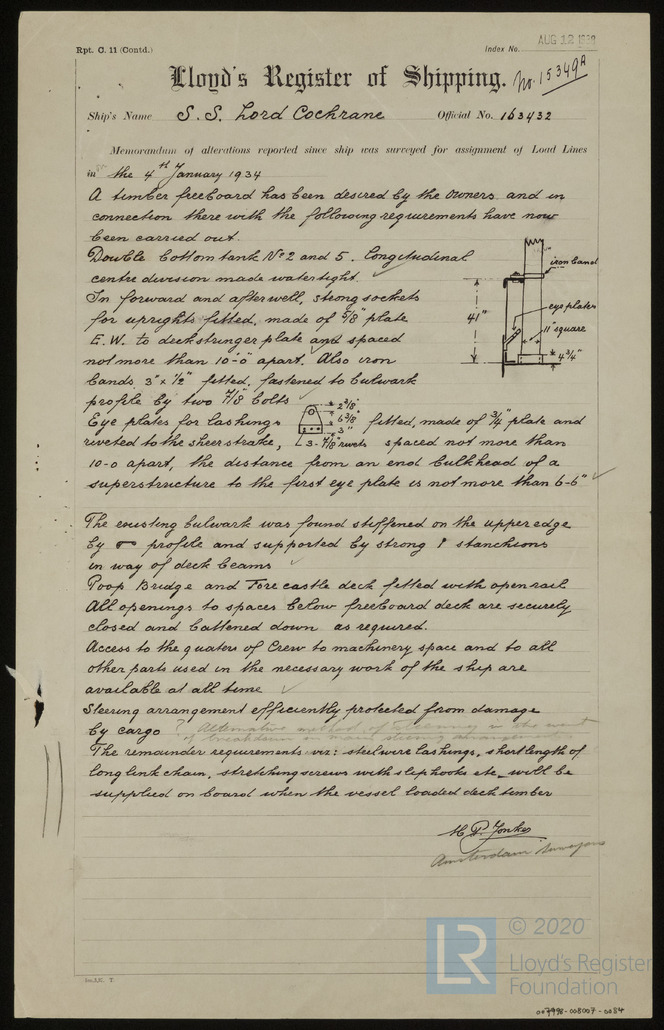 Rpt. C. 11 (Contd.)
Index No.
AUG 12
Lloyd's Register of Shipping.
No. 15349A
Ship's Name S.S. Lord Cochrane Official No. 163432
Memorandum of alterations reported since ship was surveyed for assignment of Load Lines
in the 4th January 1934
A timber freeboard has been desired by the owners and in
connection there with the following requirements have now
been carried out.
Double bottom tank No 2 and 5. Longitudinal
centre division made watertight.
In forward and afterwell, strong sockets
for uprights fitted, made of 5/8" plate
E.W. to deckstringer plate and spaced
not more than 10-0" apart. Also iron
bands 3" x 1/2" fitted, fastened to bulwark
profile by two 7/8 bolts
iron band
eye plates
41"
11" square
4 3/4"
Eye plates for lashings 2 3/8" 6 3/8" 3" fitted, made of 3/4" plate and
riveted to the sheerstrake, 3 - 7/8" rivets spaced not more than
10-0 apart, the distance from an end bulkhead of a
superstructure to the first eye plate is not more than 6-6"
The existing bulwark was found stiffened on the upper edge
by profile and supported by strong stanchions
in way of deck beams
Poop Bridge and Forecastle deck fitted with open rail
All openings to spaces below freeboard deck are securely
closed and battened down as required.
Access to the quaters of Crew to machinery space and to all
other parts used in the necessary work of the ship are
available at all time
Steering arrangement efficiently protected from damage
by cargo ? Alternative method of steering in the event
of breakdown in main steering arrangement
The remainder requirements viz: steelwire lashings, short length of
long link chain, stretching screws with sliphooks etc will be
supplied on board when the vessel loaded deck timber
Amsterdam Surveyors
© 2020
LR
Lloyd's Register
Foundation
007998-008007-0084